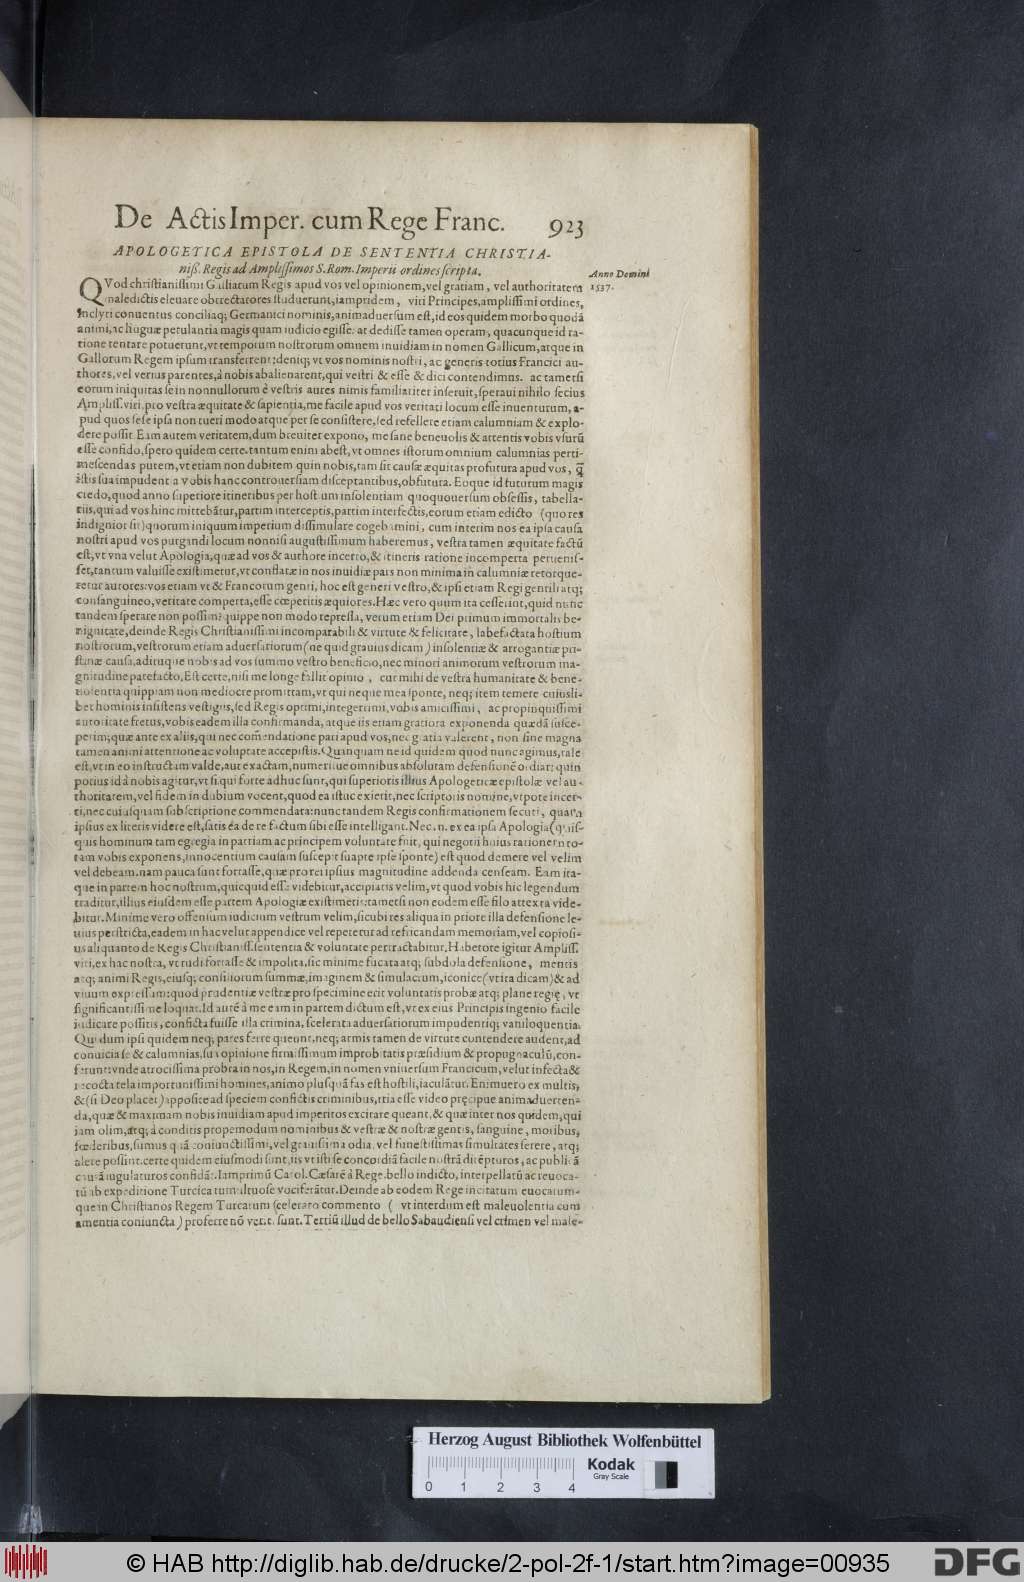 De Actis Imper. cum Rege Franc. 923
APOLOGETICA EPISTOLA DE SENTENTIA CHRISTIA-
niss. Regis ad Amplissimos S. Rom. Imperii ordines scripta.
Anno Domini
1537.
QVod christianissimi Galliarum Regis apud vos vel opinionem, vel gratiam, vel authoritatem
maledictis eleuare obtrectatores studuerunt, iampridem, viri Principes, amplissimi ordines,
Inclyti conuentus conciliaq; Germanici nominis, animaduersum est, id eos quidem morbo quodã
animi, ac linguæ petulantia magis quam iudicio egisse: at dedisse tamen operam, quacunque id ra-
tione tentare potuerunt, vt temporum nostrorum omnem inuidiam in nomen Gallicum, atque in
Gallorum Regem ipsum transferrent: deniq; vt vos nominis nostri, ac generis totius Francici au-
thores, vel verius parentes, à nobis abalienarent, qui vestri & esse & dici contendimus. ac tametsi
eorum iniquitas se in nonnullorum è vestris aures nimis familiariter inseruit, speraui nihilo secius
Ampliss. viri, pro vestra æquitate & sapientia, me facile apud vos veritati locum esse inuenturum, a-
pud quos sese ipsa non tueri modo atque per se consistere, sed refellere etiam calumniam & explo-
dere possit. Eam autem veritatem, dum breuiter expono, me sane beneuolis & attentis vobis vsurũ
esse confido, spero quidem certe. tantum enim abest, vt omnes istorum omnium calumnias perti-
mescendas putem, vt etiam non dubitem quin nobis, tam sit causæ æquitas profutura apud vos, q̃
istis sua impudentia vobis hanc controuersiam disceptantibus, obfutura. Eoque id futurum magis
credo, quod anno superiore itineribus per hostium insolentiam quoquouersum obsessis, tabella-
riis, qui ad vos hinc mittebãtur, partim interceptis, partim interfectis, eorum etiam edicto (quo res
indignior sit) quorum iniquum imperium dissimulare cogebamini, cum interim nos ea ipsa causa
nostri apud vos purgandi locum nonnisi augustissimum haberemus, vestra tamen æquitate factũ
est, vt vna velut Apologia, quæ ad vos & authore incerto, & itineris ratione incomperta peruenis-
set, tantum valuisse existimetur, vt conflatæ in nos inuidiæ pars non minima in calumniæ retorque-
retur autores: vos etiam vt & Francorum genti, hoc est generi vestro, & ipsi etiam Regi gentili atq;
consanguineo, veritate comperta, esse cœperitis æquiores. Hæc vero quum ita cesserint, quid nunc
tandem sperare non possim? quippe non modo repressa, verum etiam Dei primum immortalis be-
nignitate, deinde Regis Christianissimi incomparabili & virtute & felicitate, labefactata hostium
nostrorum, vestrorum etiam aduersariorum (ne quid grauius dicam) insolentiæ & arrogantiæ pri-
stinæ causa, adituque nobis ad vos summo vestro beneficio, nec minori animorum vestrorum ma-
gnitudine patefacto, Est certe, nisi me longe fallit opinio, cur mihi de vestra humanitate & bene-
uolentia quippiam non mediocre promittam, vt qui neque mea sponte, neq; item temere cuiusli-
bet hominis insistens vestigiis, sed Regis optimi, integerrimi, vobis amicissimi, ac propinquissimi
autoritate fretus, vobis eadem illa confirmanda, atque iis etiam gratiora exponenda quædã susce-
perim; quæ ante ex aliis, qui nec commendatione pari apud vos, nec gratia valerent, non sine magna
tamen animi attentione ac voluptate accepistis. Quanquam ne id quidem quod nunc agimus, tale
est, vt in eo instructam valde, aut exactam, numerisue omnibus absolutam defensionẽ ordiar: quin
potius id à nobis agitur, vt si qui forte adhuc sunt, qui superioris illius Apologeticæ epistolæ vel au-
thoritatem, vel fidem in dubium vocent, quod ea istuc exierit, nec scriptoris nomine, vtpote incer-
ti, nec cuiusquam subscriptione commendata: nunc tandem Regis confirmationem secuti, quam
ipsius ex literis videre est, satis ea de re factum sibi esse intelligant. Nec.n. ex ea ipsa Apologia (quis-
quis hominum tam egregia in patriam ac principem voluntate fuit, qui negotii huius rationem to-
tam vobis exponens, innocentium causam suscepit suapte ipse sponte) est quod demere vel velim
vel debeam. nam pauca sunt fortasse, quæ pro rei ipsius magnitudine addenda censeam. Eam ita-
que in partem hoc nostrum, quicquid esse videbitur, accipiatis velim, vt quod vobis hic legendum
traditur, illius eiusdem esse partem Apologiæ existimetis: tametsi non eodem esse filo attexta vide-
bitur. Minime vero offensum iudicium vestrum velim, sicubi res aliqua in priore illa defensione le-
uius perstricta, eadem in hac velut appendice vel repetetur ad refricandam memoriam, vel copiosi-
us aliquanto de Regis Christianiss. sententia & voluntate pertractabitur. Habetote igitur Ampliss.
viri, ex hac nostra, vt rudi fortasse & impolita, sic minime fucata atq; subdola defensione, mentis
atq; animi Regis, eiusq; consiliorum summæ, imaginem & simulacrum, iconice (vt ita dicam) & ad
viuum expressum: quod prudentiæ vestræ pro specimine erit voluntatis probæ atq; plane regię, vt
significantissime loquar. Id autẽ à me eam in partem dictum est, vt ex eius Principis ingenio facile
iudicare possitis, conficta fuisse illa crimina, scelerata aduersariorum impudentiq; vaniloquentia.
Qui dum ipsi quidem neq; pares ferre queunt, neq; armis tamen de virtute contendere audent, ad
conuicia se & calumnias, sua opinione firmissimum improbitatis præsidium & propugnaculũ, con-
ferunt: vnde atrocissima probra in nos, in Regem, in nomen vniuersum Francicum, velut infecta &
recocta tela importunissimi homines, animo plusquã fas est hostili, iaculãtur. Enimuero ex multis,
& (si Deo placet) apposite ad speciem confictis criminibus, tria esse video pręcipue animaduerten-
da, quæ & maximam nobis inuidiam apud imperitos excitare queant, & quæ inter nos quidem, qui
iam olim, atq; à conditis propemodum nominibus & vestræ & nostræ gentis, sanguine, moribus,
fœderibus, sumus quã coniunctissimi, vel grauissima odia, vel funestissimas simultates serere, atq;
alere possint. certe quidem eiusmodi sunt, iis vt isti se concordiã facile nostrã diremptũros, ac publicã
causã iugulaturos confidãt. Iamprimũ Carol. Cæsarẽ à Rege bello indicto, interpellatũ ac reuoca-
tũ ab expeditione Turcica tumultuose vociferãtur. Deinde ab eodem Rege incitatum euocatum-
que in Christianos Regem Turcarum scelerato commento (vt interdum est maleuolentia cum
amentia coniuncta) proferre nõ verit. sunt. Tertiũ illud de bello Sabaudiensi vel crimen vel male-
Herzog August Bibliothek Wolfenbüttel
Kodak
Gray Scale
0 1 2 3 4
© HAB http://diglib.hab.de/drucke/2-pol-2f-1/start.htm?image=00935
DFG